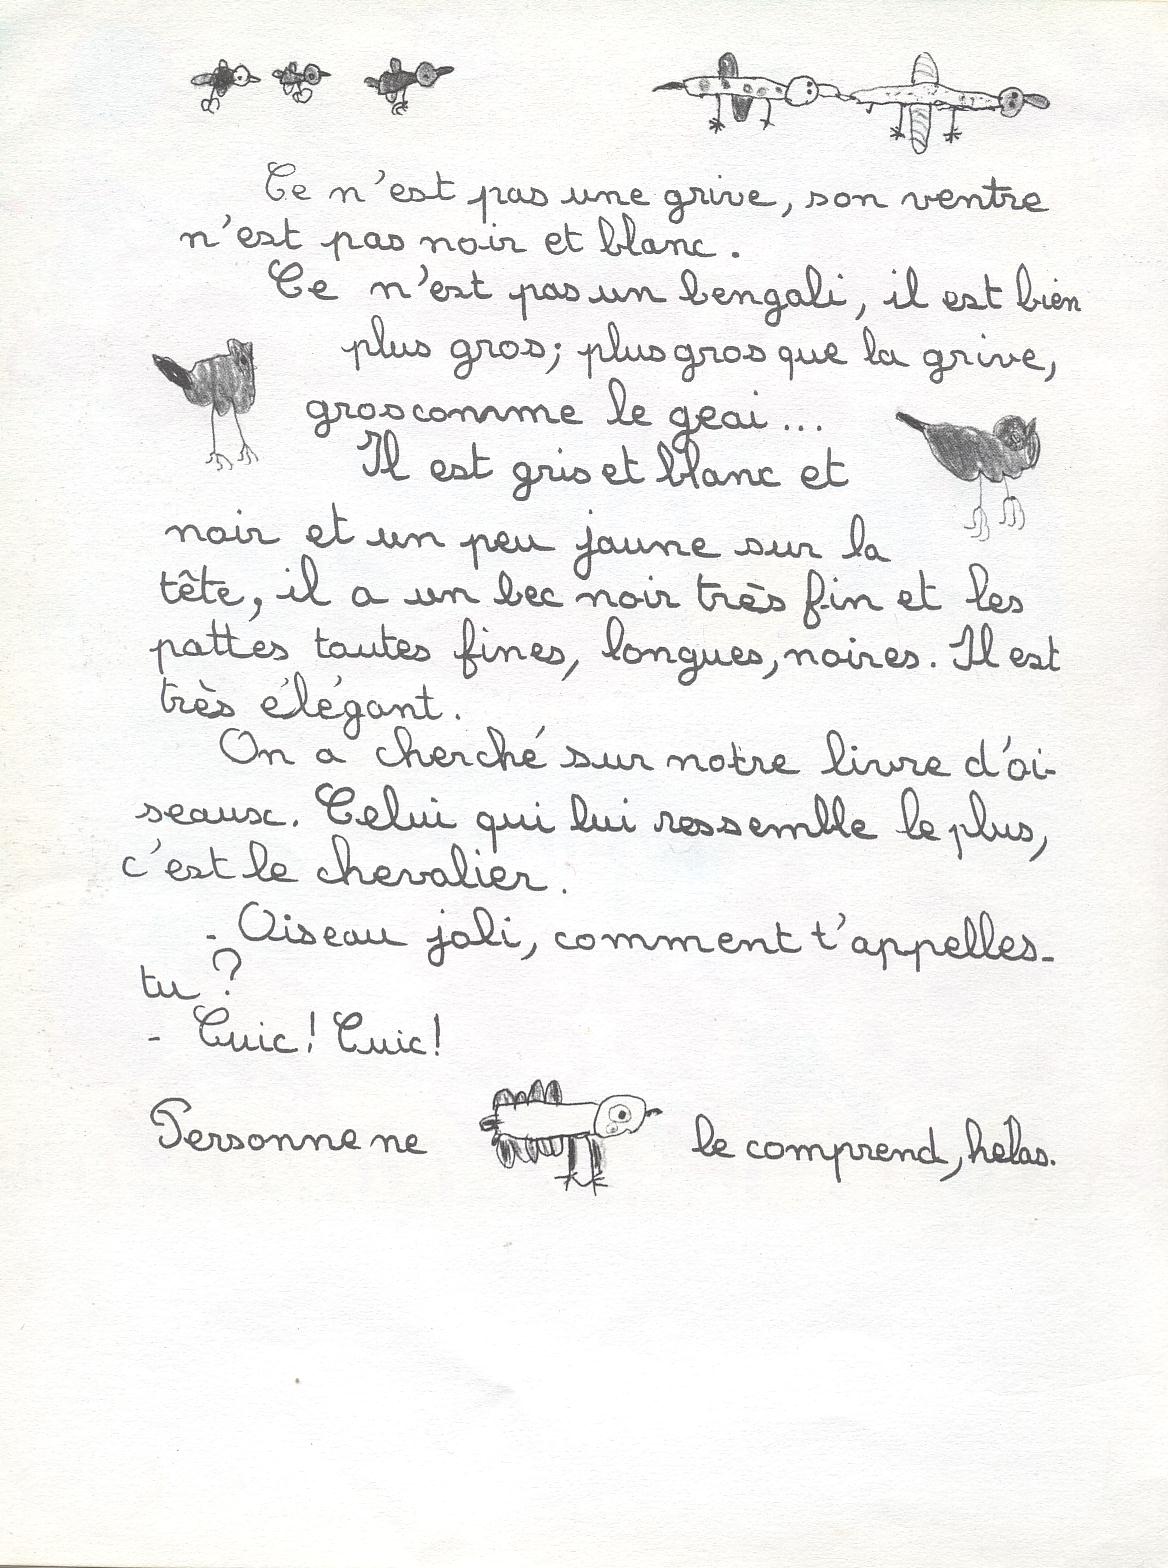 Ce n'est pas une grive, son ventre
n'est pas noir et blanc.
Ce n'est pas un bengali, il est bien
plus gros; plus gros que la grive,
gros comme le geai...
Il est gris et blanc et
noir et un peu jaune sur la
tête, il a un bec noir très fin et les
pattes toutes fines, longues, noires. Il est
très élégant.
On a cherché sur notre livre d'oi-
seaux. Celui qui lui ressemble le plus,
c'est le chevalier.
- Oiseau joli, comment t'appelles-
tu ?
- Cuic! Cuic!
Personne ne le comprend, hélas.